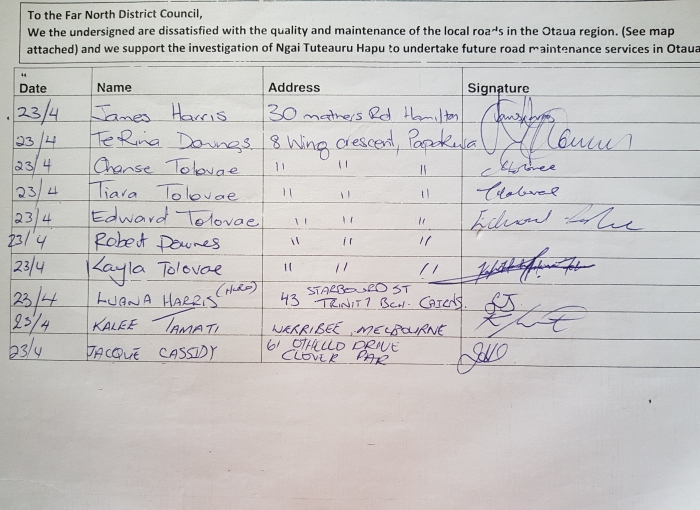 To the Far North District Council,
We the undersigned are dissatisfied with the quality and maintenance of the local roads in the Otaua region. (See map
attached) and we support the investigation of Ngai Tuteauru Hapu to undertake future road maintenance services in Otaua
Date Name Address Signature
23/4 James Harris 30 mathers Rd Hamilton
23/4 TeRina Downes 8 Wing crescent, Papakura
23/4 Chanse Tolovae " " "
23/4 Tiara Tolovae " " "
23/4 Edward Tolovae " " "
23/4 Robert Downes " " "
23/4 Kayla Tolovae " " "
23/4 LUANA HARRIS 43 STARBOURD ST
TRINITY BCH. CAIRNS.
23/4 KALEE TAMATI WERRIBEE, MELBOURNE
23/4 JACQUE CASSIDY 61 OTHELLO DRIVE
CLOVER PAR